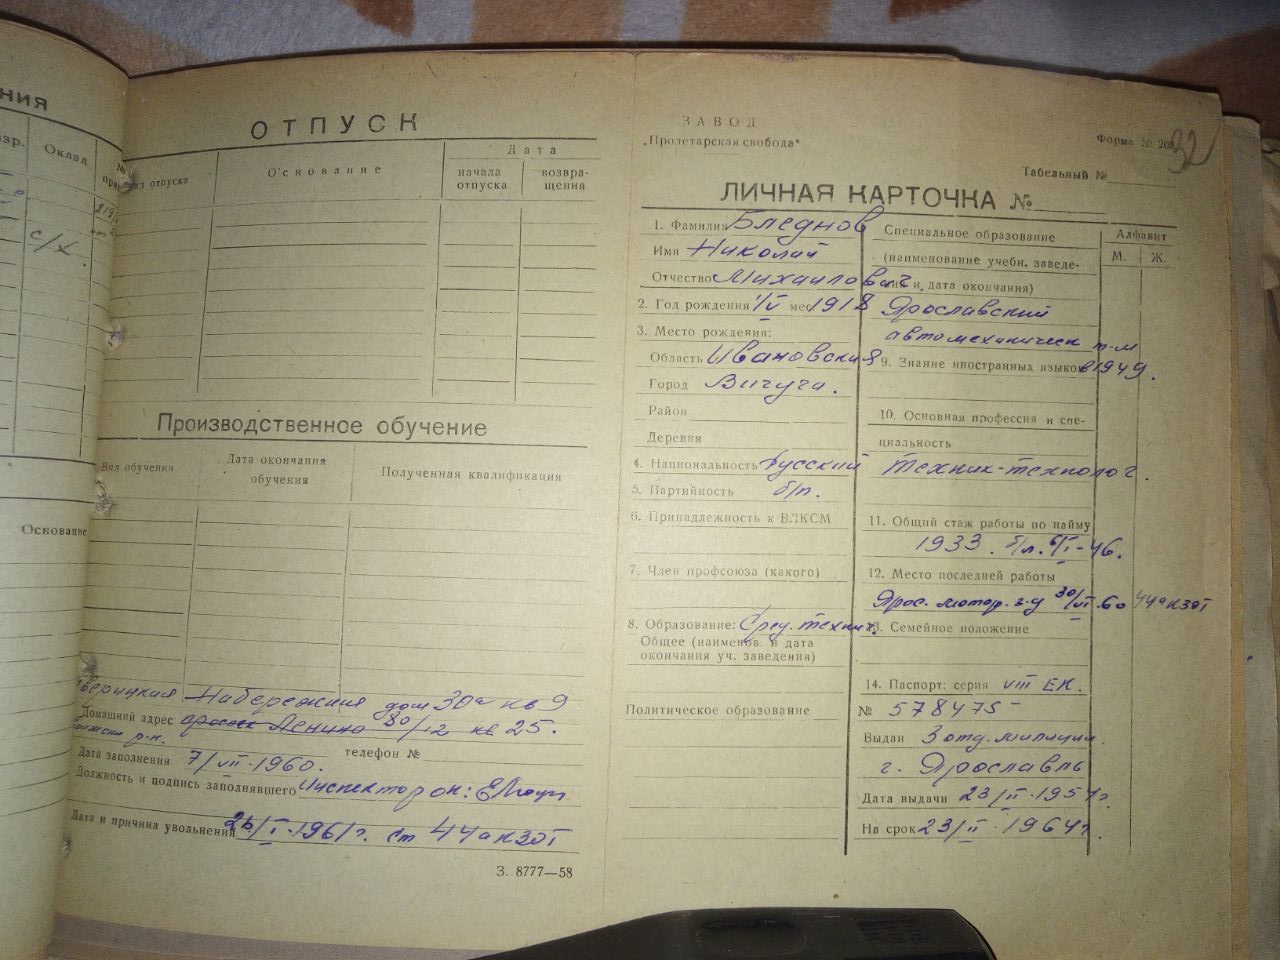 ния
Оклад
с/х.
Основание
ОТПУСК
Вид отпуска
Основание
Дата
начала отпуска
возвра-
щения
Производственное обучение
Вид обучения
Дата окончания
обучения
Полученная квалификация
Набережная дом 30а кв 9
Домашний адрес проспек Ленина 80/12 кв 25.
телефон №
Дата заполнения 7/VII-1960.
Должность и подпись заполнявшего Инспектор ок:
Дата и причина увольнения 26/I-1961г. Ст 44а КЗОТ
З. 8777—58
ЗАВОД
„Пролетарская свобода“
Форма № 208
32
Табельный №
ЛИЧНАЯ КАРТОЧКА №
1. Фамилия Бледнов
Имя Николай
Отчество Михайлович
2. Год рождения 1/V мес 1918
3. Место рождения:
Область Ивановская
Город Вичуга.
Район
Деревня
4. Национальность Русский
5. Партийность б/п.
6. Принадлежность к ВЛКСМ
7. Член профсоюза (какого)
8. Образование: Сред. технич.
Общее (наименов. и дата
окончания уч. заведения)
Политическое образование
Специальное образование
(наименование учебн. заведе-
ния и дата окончания)
Ярославский
автомеханическ т-м
в 1949.
9. Знание иностранных языков
10. Основная профессия и спе-
циальность
техник-технолог.
11. Общий стаж работы по найму
1933.
12. Место последней работы
Яросл. мотор. з-д 30/VI-60 44а КЗОТ
13. Семейное положение
14. Паспорт: серия VIII ЕК.
№ 578475
Выдан 3 отд. милиции.
г. Ярославль
Дата выдачи 23/II-1957г
На срок 23/II-1964г.
Алфавит
М.
Ж.